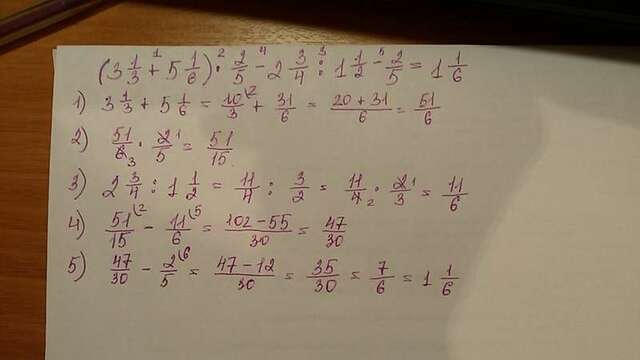 (3 1/3 +¹ 5 1/6) ·² 2/5 -⁴ 2 3/4 :³ 1 1/2 -⁵ 2/5 = 1 1/6
1) 3 1/3 + 5 1/6 = 10/3 (2 + 31/6 = 20+31/6 = 51/6
2) 51/6 3 · 2/5 1 = 51/15
3) 2 3/4 : 1 1/2 = 11/4 : 3/2 = 11/4 2 · 2/3 1 = 11/6
4) 51/15 (2 - 11/6 (5 = 102-55/30 = 47/30
5) 47/30 - 2/5 (6 = 47-12/30 = 35/30 = 7/6 = 1 1/6